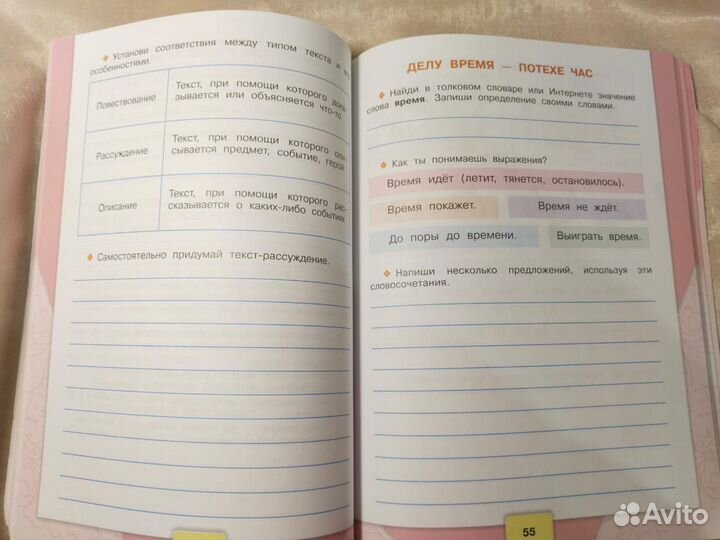 Установи соответствия между типом текста и
особенностями.
Повествование
Текст, при помощи которого дока-
зывается или объясняется что-то
Рассуждение
Текст, при помощи которого опи-
сывается предмет, событие, герой
Описание
Текст, при помощи которого рас-
сказывается о каких-либо событиях
Самостоятельно придумай текст-рассуждение.
ДЕЛУ ВРЕМЯ — ПОТЕХЕ ЧАС
Найди в толковом словаре или Интернете значение
слова время. Запиши определение своими словами.
Как ты понимаешь выражения?
Время идёт (летит, тянется, остановилось).
Время покажет.
Время не ждёт.
До поры до времени.
Выиграть время.
Напиши несколько предложений, используя эти
словосочетания.
55
Avito